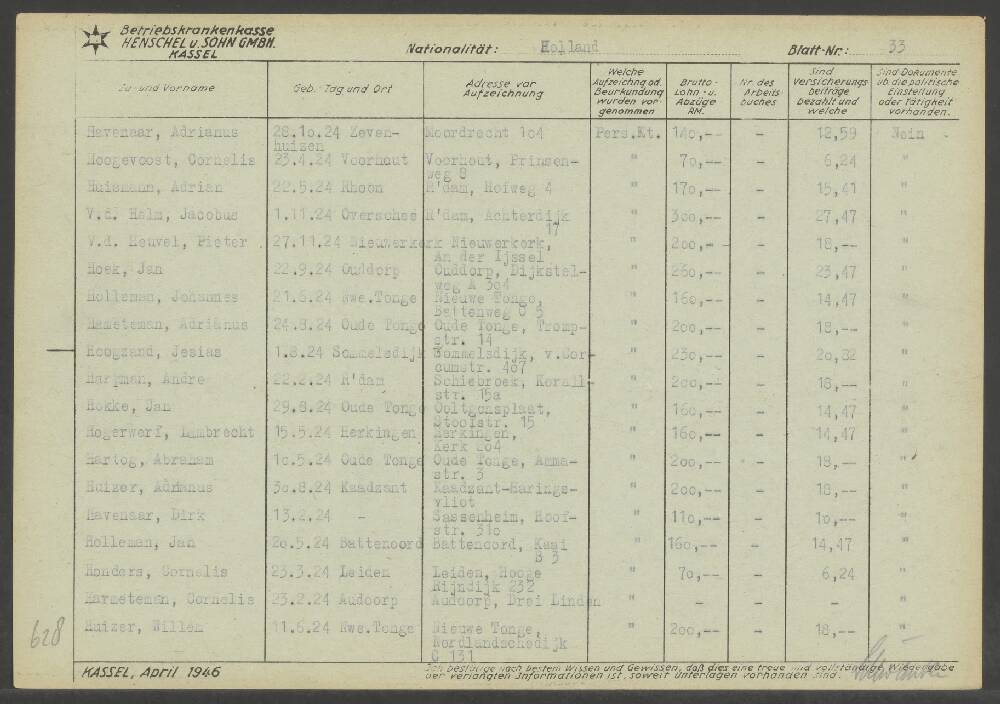 Betriebskrankenkasse
HENSCHEL u. SOHN GMBH.
KASSEL
Nationalität: Holland
Blatt-Nr.: 33
Zu- und Vorname
Geb.- Tag und Ort
Adresse vor Aufzeichnung
Welche Aufzeichng. od. Beurkundung wurden vorgenommen
Brutto-Lohn - u. Abzüge RM.
Nr. des Arbeitsbuches
Sind Versicherungsbeiträge bezahlt und welche
Sind Dokumente üb. die politische Einstellung oder Tätigkeit vorhanden.
Havenaar, Adrianus 28.10.24 Zeven- Moordrecht 104 Pers.Kt. 140,-- - 12,59 Nein
huizen
Hoogevoost, Cornelis 23.4.24 Voorhout Voorhout, Prinsen- " 70,-- - 6,24 "
weg 8
Huismann, Adrian 22.5.24 Rhoon R'dam, Hofweg 4 " 170,-- - 15,41 "
V.d. Helm, Jacobus 1.11.24 Overschee R'dam, Achterdijk " 300,-- - 27,47 "
17
V.d. Heuvel, Pieter 27.11.24 Nieuwerkerk Nieuwerkerk, " 200,-- - 18,-- "
An der Ijssel
Hoek, Jan 22.9.24 Ouddorp Ouddorp, Dijkstel- " 260,-- - 23,47 "
weg A 304
Holleman, Johannes 21.6.24 Nwe.Tonge Nieuwe Tonge, " 160,-- - 14,47 "
Battenweg C 5
Hameteman, Adrianus 24.8.24 Oude Tonge Oude Tonge, Tromp- " 200,-- - 18,-- "
str. 14
Hoogzand, Jesias 1.8.24 Sommelsdijk Sommelsdijk, v.Gor- " 230,-- - 20,82 "
cumstr. 467
Harpman, Andre 22.2.24 R'dam Schiebroek, Korall- " 200,-- - 18,-- "
str. 15a
Hokke, Jan 29.8.24 Oude Tonge Ooltgensplaat, " 160,-- - 14,47 "
Stoofstr. 15
Hogerwerf, Lambrecht 15.5.24 Herkingen Herkingen, " 160,-- - 14,47 "
Kerk 204
Hartog, Abraham 10.5.24 Oude Tonge Oude Tonge, Amma- " 200,-- - 18,-- "
str. 3
Huizer, Adrianus 30.8.24 Kaadzant Kaadzant-Harings- " 200,-- - 18,-- "
vliet
Havenaar, Dirk 13.2.24 - Sassenheim, Hoof- " 110,-- - 10,-- "
str. 310
Holleman, Jan 20.5.24 Battenoord Battenoord, Kaai " 160,-- - 14,47 "
B 3
Honders, Cornelis 23.3.24 Leiden Leiden, Hooge " 70,-- - 6,24 "
Rijndijk 232
Harmeteman, Cornelis 23.2.24 Audoorp Audoorp, Drei Linden " - - - "
Huizer, Willem 11.6.24 Nwe.Tonge Nieuwe Tonge, " 200,-- - 18,-- "
Nordlandschedijk
C 131
628
KASSEL, April 1946
Ich bestätige nach bestem Wissen und Gewissen, daß dies eine treue und vollständige Wiedergabe
der verlangten Informationen ist, soweit Unterlagen vorhanden sind.